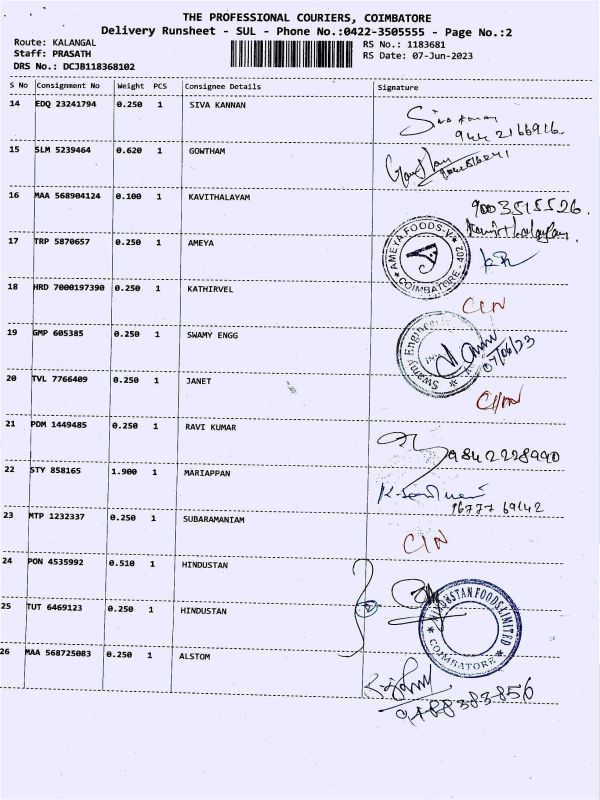 THE PROFESSIONAL COURIERS, COIMBATORE
Delivery Runsheet - SUL - Phone No.:0422-3505555 - Page No.:2
Route: KALANGAL
RS No.: 1183681
Staff: PRASATH
RS Date: 07-Jun-2023
DRS No.: DCJB118368102
S No Consignment No Weight PCS Consignee Details Signature
14 EDQ 23241794 0.250 1 SIVA KANNAN
15 SLM 5239464 0.620 1 GOWTHAM
16 MAA 568904124 0.100 1 KAVITHALAYAM
9003515526.
17 TRP 5870657 0.250 1 AMEYA
AMEYA FOODS-V COIMBATORE - 402
18 HRD 7000197390 0.250 1 KATHIRVEL
19 GMP 605385 0.250 1 SWAMY ENGG
Swamy Engineering
07/06/23
20 TVL 7766409 0.250 1 JANET
21 PDM 1449485 0.250 1 RAVI KUMAR
9842228990
22 STY 858165 1.900 1 MARIAPPAN
96777 69142
23 MTP 1232337 0.250 1 SUBARAMANIAM
24 PON 4535992 0.510 1 HINDUSTAN
25 TUT 6469123 0.250 1 HINDUSTAN
HINDUSTAN FOODS LIMITED
COIMBATORE
26 MAA 568725083 0.250 1 ALSTOM
9488383856